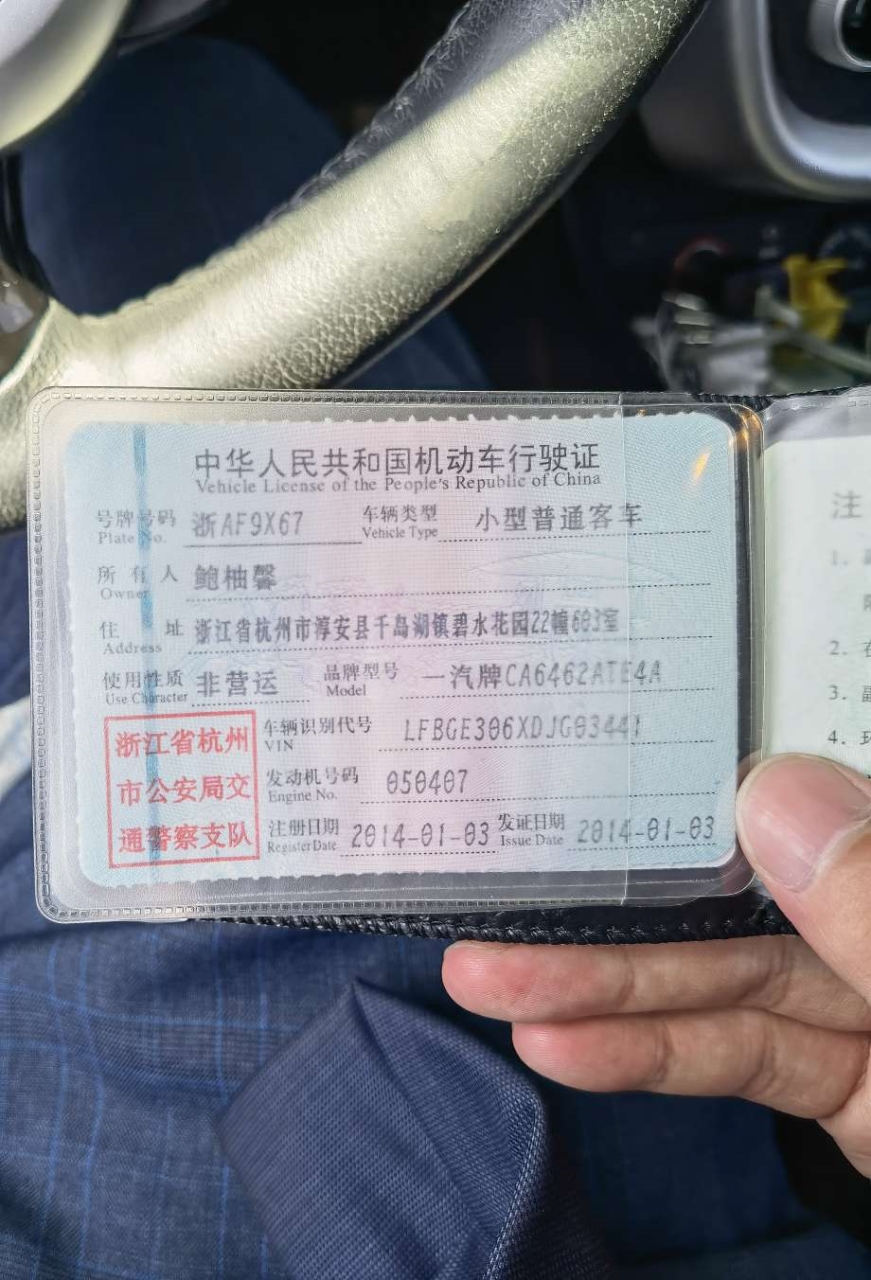 中华人民共和国机动车行驶证
Vehicle License of the People's Republic of China
号牌号码 浙AF9X67 车辆类型 小型普通客车
Plate No. Vehicle Type
所有人 鲍柚馨
Owner
住址 浙江省杭州市淳安县千岛湖镇碧水花园22幢603室
Address
使用性质 非营运 品牌型号 一汽牌CA6462ATE4A
Use Character Model
车辆识别代号 LFBGE306XDJG03441
VIN
发动机号码 050407
Engine No.
注册日期 2014-01-03 发证日期 2014-01-03
Register Date Issue Date
浙江省杭州
市公安局交
通警察支队
注
1.
2. 在
3. 副
4. 环